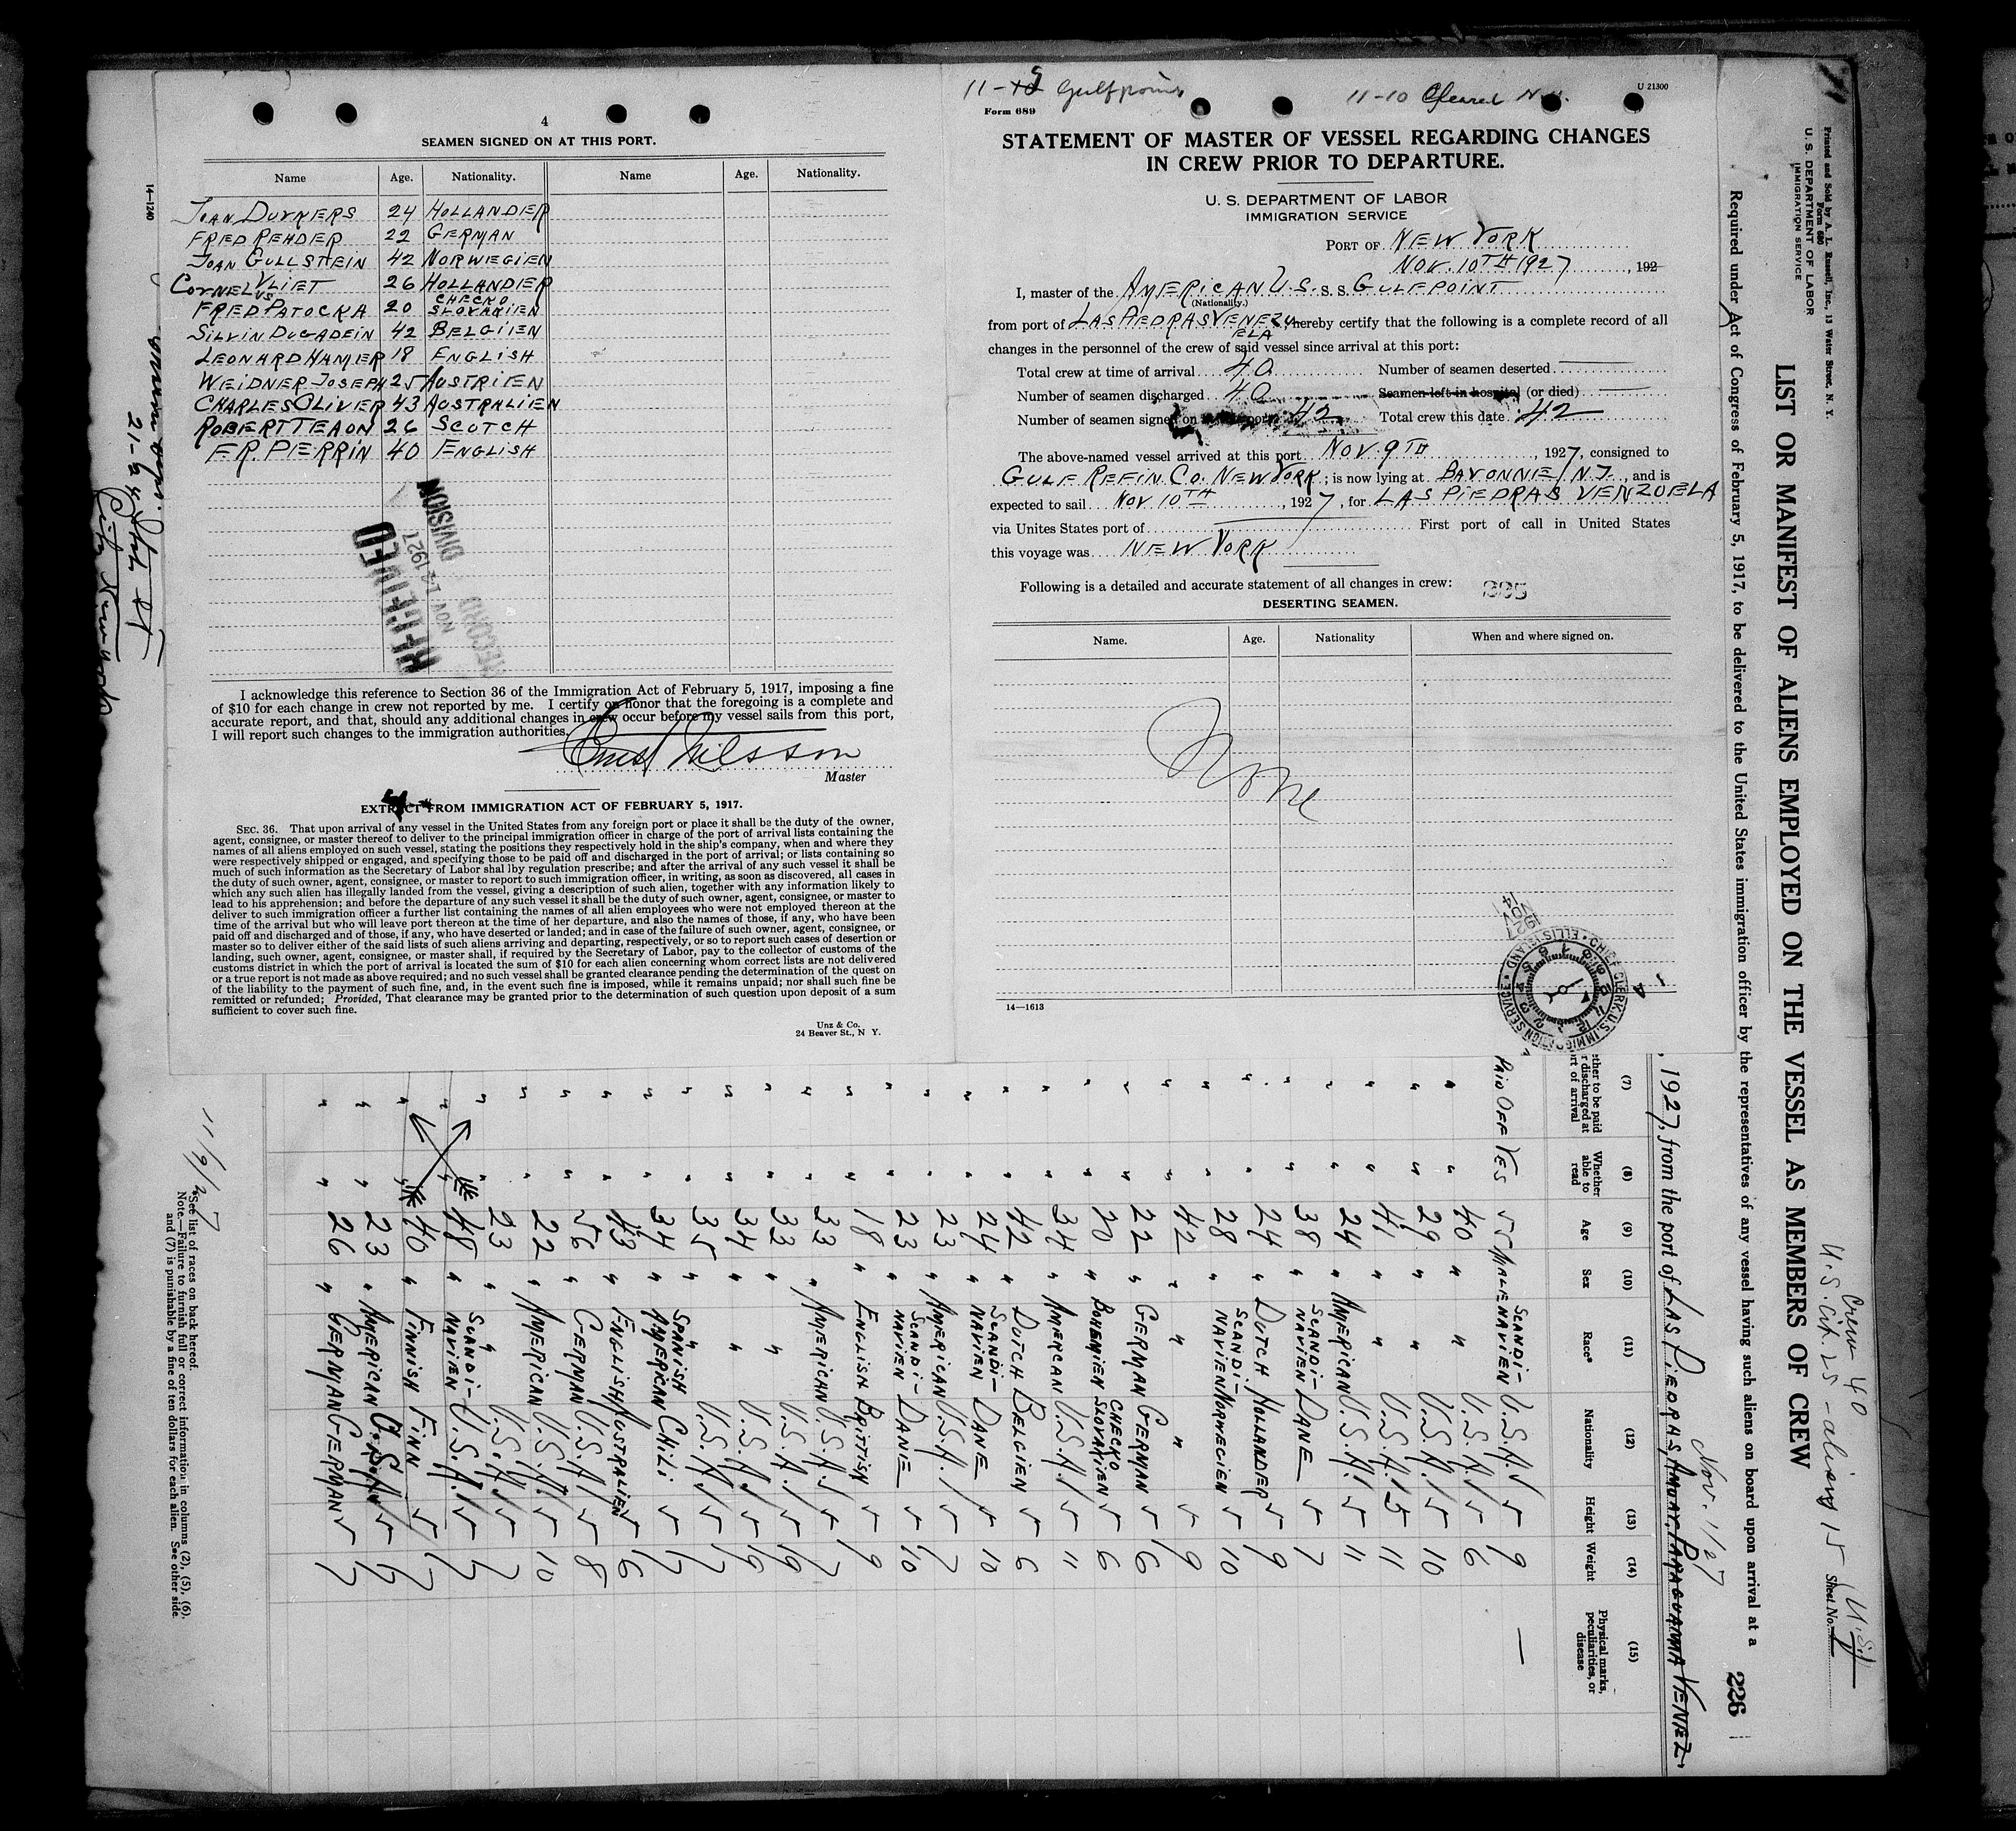 4
SEAMEN SIGNED ON AT THIS PORT.
Name Age. Nationality. Name Age. Nationality.
JOAN DUYKERS 24 HOLLANDER
FRED REHDER 22 GERMAN
JOAN GULLSTEIN 42 NORWEGIEN
CORNELVS VLIET 26 HOLLANDER
FRED PATOCKA 20 CHECKO SLOVAKIEN
SILVIN DUGADEIN 42 BELGIIEN
LEONARD HAMER 18 ENGLISH
WEIDNER JOSEPH 25 AUSTRIEN
CHARLES OLIVER 43 AUSTRALIEN
ROBERT TEAON 26 SCOTCH
F.R. PIERRIN 40 ENGLISH
RECEIVED
NOV 14 1927
RECORD DIVISION
I acknowledge this reference to Section 36 of the Immigration Act of February 5, 1917, imposing a fine
of $10 for each change in crew not reported by me. I certify on honor that the foregoing is a complete and
accurate report, and that, should any additional changes in crew occur before my vessel sails from this port,
I will report such changes to the immigration authorities.
Ernst Nilsson
Master
EXTRACT FROM IMMIGRATION ACT OF FEBRUARY 5, 1917.
SEC. 36. That upon arrival of any vessel in the United States from any foreign port or place it shall be the duty of the owner,
agent, consignee, or master thereof to deliver to the principal immigration officer in charge of the port of arrival lists containing the
names of all aliens employed on such vessel, stating the positions they respectively hold in the ship's company, when and where they
were respectively shipped or engaged, and specifying those to be paid off and discharged in the port of arrival; or lists containing so
much of such information as the Secretary of Labor shal lby regulation prescribe; and after the arrival of any such vessel it shall be
the duty of such owner, agent, consignee, or master to report to such immigration officer, in writing, as soon as discovered, all cases in
which any such alien has illegally landed from the vessel, giving a description of such alien, together with any information likely to
lead to his apprehension; and before the departure of any such vessel it shall be the duty of such owner, agent, consignee, or master to
deliver to such immigration officer a further list containing the names of all alien employees who were not employed thereon at the
time of the arrival but who will leave port thereon at the time of her departure, and also the names of those, if any, who have been
paid off and discharged and of those, if any, who have deserted or landed; and in case of the failure of such owner, agent, consignee, or
master so to deliver either of the said lists of such aliens arriving and departing, respectively, or so to report such cases of desertion or
landing, such owner, agent, consignee, or master shall, if required by the Secretary of Labor, pay to the collector of customs of the
customs district in which the port of arrival is located the sum of $10 for each alien concerning whom correct lists are not delivered
or a true report is not made as above required; and no such vessel shall be granted clearance pending the determination of the quest on
of the liability to the payment of such fine, and, in the event such fine is imposed, while it remains unpaid; nor shall such fine be
remitted or refunded; Provided, That clearance may be granted prior to the determination of such question upon deposit of a sum
sufficient to cover such fine.
Unz & Co.
24 Beaver St., N Y.
14—1240
21-24 State St
11-9 Gulfpoint
11-10 Cleared N.Y.
U 21300
Form 689
STATEMENT OF MASTER OF VESSEL REGARDING CHANGES
IN CREW PRIOR TO DEPARTURE.
U. S. DEPARTMENT OF LABOR
IMMIGRATION SERVICE
PORT OF NEW YORK
NOV. 10TH 1927, 192
I, master of the AMERICAN U.S. S. S. GULFPOINT
(Nationality.)
from port of LAS PIEDRAS VENEZUELA, hereby certify that the following is a complete record of all
changes in the personnel of the crew of said vessel since arrival at this port:
Total crew at time of arrival 40 Number of seamen deserted
Number of seamen discharged 40 Seamen left in hospital (or died)
Number of seamen signed on 42 Total crew this date 42
The above-named vessel arrived at this port NOV. 9TH, 1927, consigned to
GULF REFIN CO. NEW YORK; is now lying at BAYONNE N.J., and is
expected to sail NOV 10TH, 1927, for LAS PIEDRAS VENZUELA
via Unites States port of First port of call in United States
this voyage was NEW YORK
Following is a detailed and accurate statement of all changes in crew: 995
DESERTING SEAMEN.
Name. Age. Nationality When and where signed on.
None
14—1613
CHIEF CLERK, U.S. IMMIGRATION SERVICE • ELLIS ISLAND •
NOV 14 1927
Printed and Sold by A. L. Russell, Inc., 13 Water Street, N. Y.
Form 680
U. S. DEPARTMENT OF LABOR
IMMIGRATION SERVICE
Crew 40
U.S. Cit. 25 - aliens 15
Sheet No. 1
LIST OR MANIFEST OF ALIENS EMPLOYED ON THE VESSEL AS MEMBERS OF CREW
Required under Act of Congress of February 5, 1917, to be delivered to the United States immigration officer by the representatives of any vessel having such aliens on board upon arrival at a
226
Nov. 1/27
, 1927, from the port of LAS PIEDRAS, AMUAY, PARAGUANA VENEZ.
(7) (8) (9) (10) (11) (12) (13) (14) (15)
Whether able to read Age Sex Race* Nationality Height Weight Physical marks, peculiarities, or disease
PAID OFF YES 55 MALE SCANDINAVIEN U.S.A. 5 9 —
" " 40 " " U.S.A. 5 6
" " 29 " " U.S.A. 5 10
" " 41 " " U.S.A. 5 11
" " 24 " AMERICAN U.S.A. 5 11
" " 38 " SCANDI-NAVIEN DANE 5 7
" " 24 " DUTCH HOLLANDER 5 9
" " 28 " SCANDI-NAVIEN NORWEGIEN 5 10
" " 42 " " " 5 9
" " 22 " GERMAN GERMAN 5 6
" " 20 " BOHEMIEN CHECKO SLOVAKIEN 5 6
" " 34 " AMERCAN U.S.A. 5 11
" " 42 " DUTCH BELGIEN 5 6
" " 24 " SCANDI-NAVIEN DANE 5 10
" " 23 " AMERICAN U.S.A. 5 7
" " 23 " SCANDI-NAVIEN DANE 5 10
" " 18 " ENGLISH BRITTISH 5 9
" " 33 " AMERICAN U.S.A. 5 7
" " 33 " " U.S.A. 5 9
" " 34 " " U.S.A. 5 9
" " 35 " " U.S.A. 5 7
" " 34 " SPANISH AMERICAN CHILI 5 7
" " 43 " ENGLISH AUSTRALIEN 5 6
" " 56 " GERMAN U.S.A. 5 8
" " 22 " AMERICAN U.S.A. 5 10
" " 23 " " U.S.A. 5 7
" " 48 " SCANDI-NAVIEN U.S.A. 5 7
" " 40 " FINNISH FINN 5 7
" " 23 " AMERICAN U.S.A. 5 7
" " 26 " GERMAN GERMAN 5 7
*See list of races on back hereof.
Note.—Failure to furnish full or correct information in columns (2), (5), (6),
and (7) is punishable by a fine of ten dollars for each alien. See other side.
11/9/27